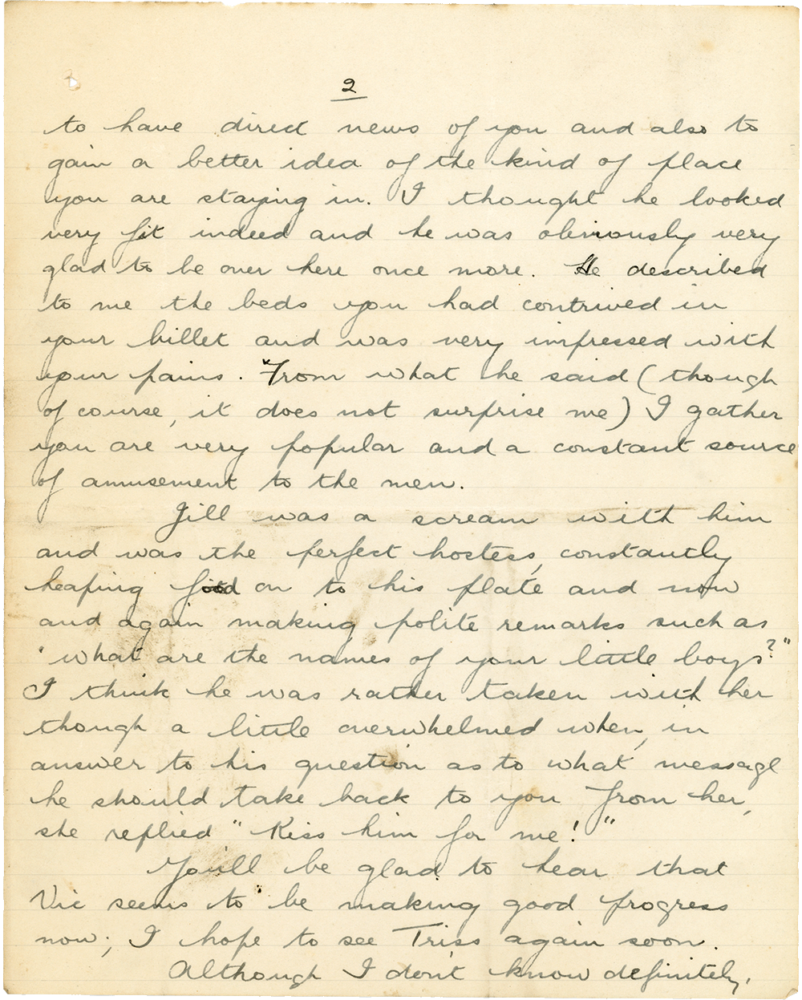 2
to have direct news of you and also to
gain a better idea of the kind of place
you are staying in. I thought he looked
very fit indeed and he was obviously very
glad to be over here once more. He described
to me the beds you had contrived in
your billet and was very impressed with
your pains. From what he said (though
of course, it does not surprise me) I gather
you are very popular and a constant source
of amusement to the men.
Jill was a scream with him
and was the perfect hostess, constantly
heaping food on to his plate and now
and again making polite remarks such as
"what are the names of your little boys?"
I think he was rather taken with her
though a little overwhelmed when, in
answer to his question as to what message
he should take back to you from her,
she replied "Kiss him for me!"
You'll be glad to hear that
Vic seems to be making good progress
now; I hope to see Triss again soon.
Although I don't know definitely,